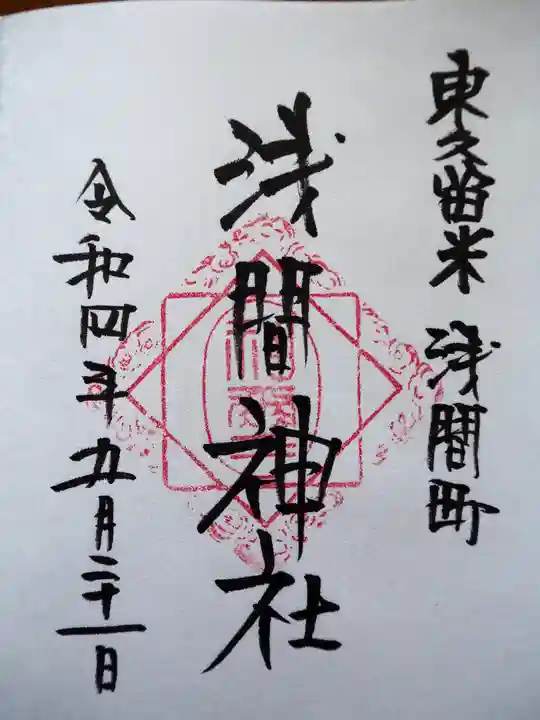 東久留米 浅間町
浅間神社
令和四年九月二十一日